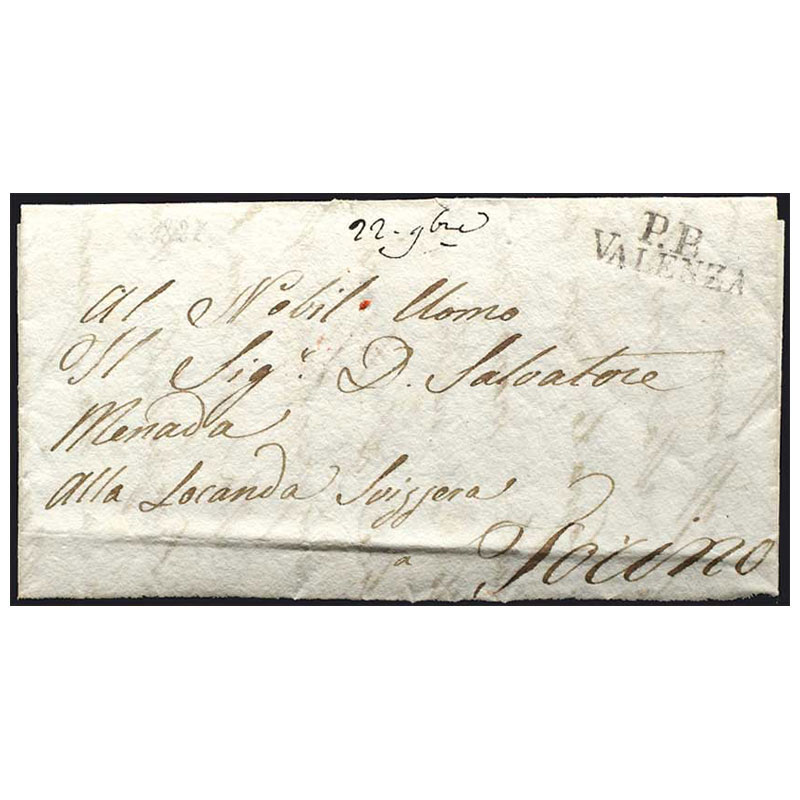 1827
22. 9bre
P.P.
VALENZA
Al Nobil Uomo
Il Sigr. D. Salvatore
Menada
Alla Locanda Svizzera
a Torino